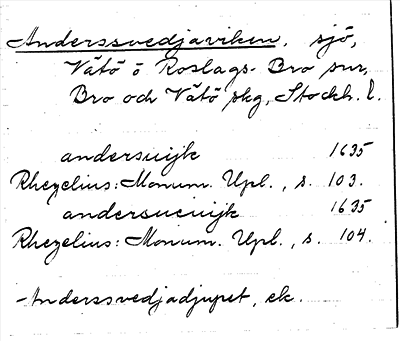 Anderssvedjaviken, sjö,
Vätö ö Roslags-Bro snr,
Bro och Vätö skg, Stockh. l.
andersuijk 1635
Rhezelius: Monum. Upl., s. 103.
andersueuijk 1635
Rhezelius: Monum. Upl., s. 104.
Anderssvedjadjupet, ek.